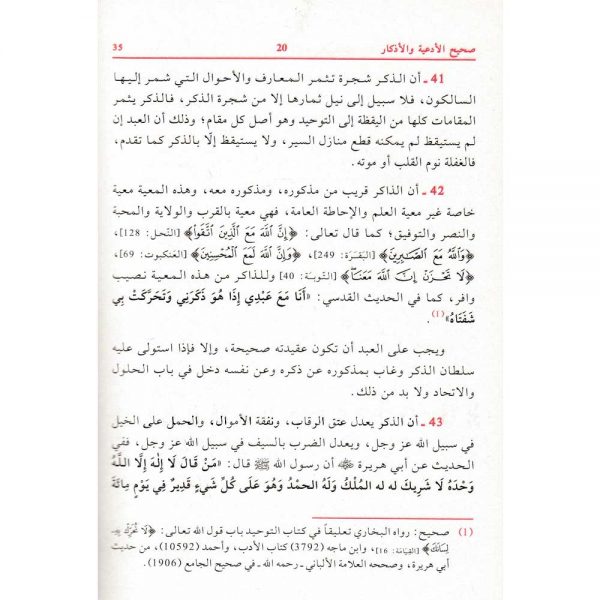 صحيح الأدعية والأذكار 20 35
41 ـ أن الذكر شجرة تثمر المعارف والأحوال التي شمر إليها
السالكون، فلا سبيل إلى نيل ثمارها إلا من شجرة الذكر، فالذكر يثمر
المقامات كلها من اليقظة إلى التوحيد وهو أصل كل مقام؛ وذلك أن العبد إن
لم يستيقظ لم يمكنه قطع منازل السير، ولا يستيقظ إلّا بالذكر كما تقدم،
فالغفلة نوم القلب أو موته.
42 ـ أن الذاكر قريب من مذكوره، ومذكوره معه، وهذه المعية معية
خاصة غير معية العلم والإحاطة العامة، فهي معية بالقرب والولاية والمحبة
والنصر والتوفيق؛ كما قال تعالى: ﴿إِنَّ اللَّهَ مَعَ الَّذِينَ اتَّقَوا﴾ [النّحل: 128]،
﴿وَاللَّهُ مَعَ الصَّابِرِينَ﴾ [البَقَرَة: 249]، ﴿وَإِنَّ اللَّهَ لَمَعَ الْمُحْسِنِينَ﴾ [العَنكبوت: 69]،
﴿لَا تَحْزَنْ إِنَّ اللَّهَ مَعَنَا﴾ [التّوبَة: 40] وللذاكر من هذه المعية نصيب
وافر، كما في الحديث القدسي: «أَنَا مَعَ عَبْدِي إِذَا هُوَ ذَكَرَنِي وَتَحَرَّكَتْ بِي
شَفَتَاهُ»(1).
ويجب على العبد أن تكون عقيدته صحيحة، وإلا فإذا استولى عليه
سلطان الذكر وغاب بمذكوره عن ذكره وعن نفسه دخل في باب الحلول
والاتحاد ولا بد من ذلك.
43 ـ أن الذكر يعدل عتق الرقاب، ونفقة الأموال، والحمل على الخيل
في سبيل الله عز وجل، ويعدل الضرب بالسيف في سبيل الله عز وجل، ففي
الحديث عن أبي هريرة ﵁ أن رسول الله ﷺ قال: «مَنْ قَالَ لَا إِلَهَ إِلَّا اللَّهُ
وَحْدَهُ لَا شَرِيكَ لَه له المُلْكُ وَلَهُ الحَمْدُ وَهُوَ عَلَى كُلِّ شَيْءٍ قَدِيرٌ فِي يَوْمٍ مِائَةَ
(1) صحيح: رواه البخاري تعليقاً في كتاب التوحيد باب قول الله تعالى: ﴿لَا تُحَرِّكْ بِهِ
لِسَانَكَ﴾ [القِيَامَة: 16]، وابن ماجه (3792) كتاب الأدب، وأحمد (10592)، من حديث
أبي هريرة، وصححه العلامة الألباني ـ رحمه الله ـ في صحيح الجامع (1906).